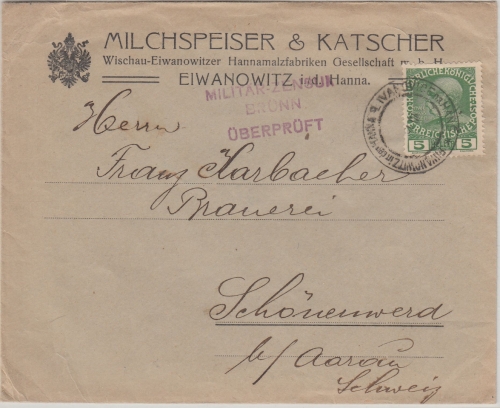 MILCHSPEISER & KATSCHER
Wischau-Eiwanowitzer Hannamalzfabriken Gesellschaft m. b. H.
EIWANOWITZ i. d. Hanna.
MILITÄR-ZENSUR
BRÜNN
ÜBERPRÜFT
5 5
Herrn
Franz Karbacher
Brauerei
Schönenwerd
b/ Aarau
Schweiz